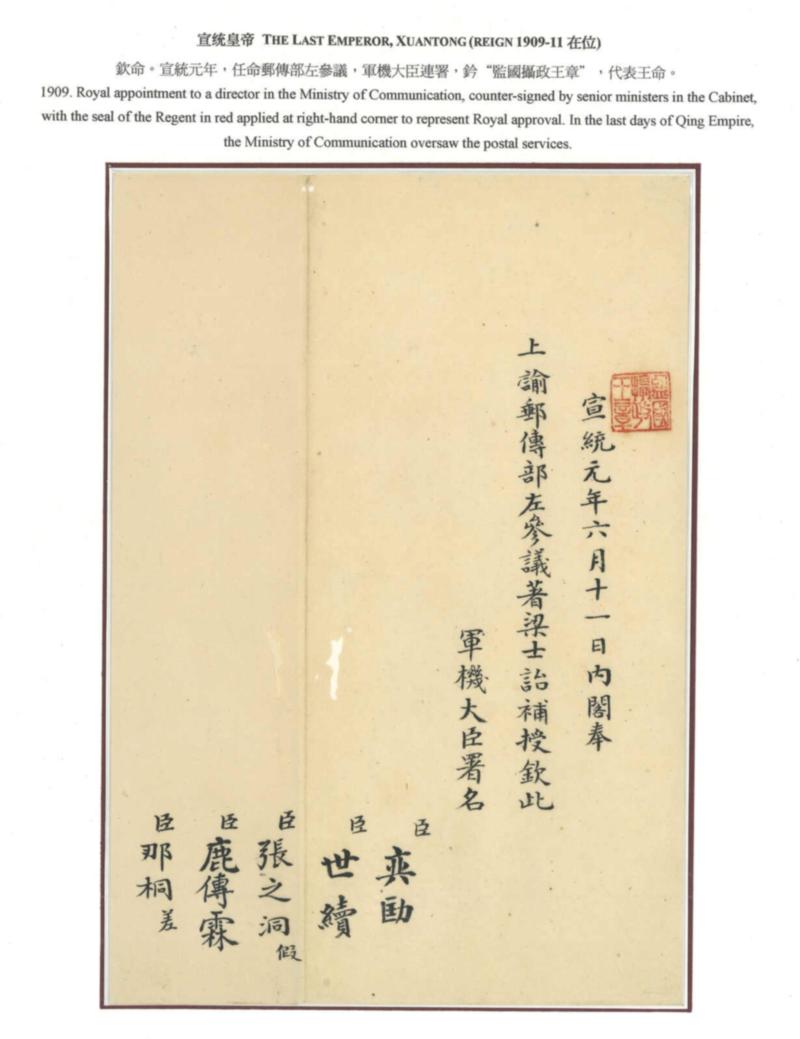 宣統皇帝 THE LAST EMPEROR, XUANTONG (REIGN 1909-11 在位)
欽命。宣統元年，任命郵傳部左參議，軍機大臣連署，鈐“監國攝政王章”，代表王命。
1909. Royal appointment to a director in the Ministry of Communication, counter-signed by senior ministers in the Cabinet,
with the seal of the Regent in red applied at right-hand corner to represent Royal approval. In the last days of Qing Empire,
the Ministry of Communication oversaw the postal services.
監國攝政王章
宣統元年六月十一日內閣奉
上諭郵傳部左參議著梁士詒補授欽此
軍機大臣署名
臣奕劻
臣世續
臣張之洞假
臣鹿傳霖
臣那桐差